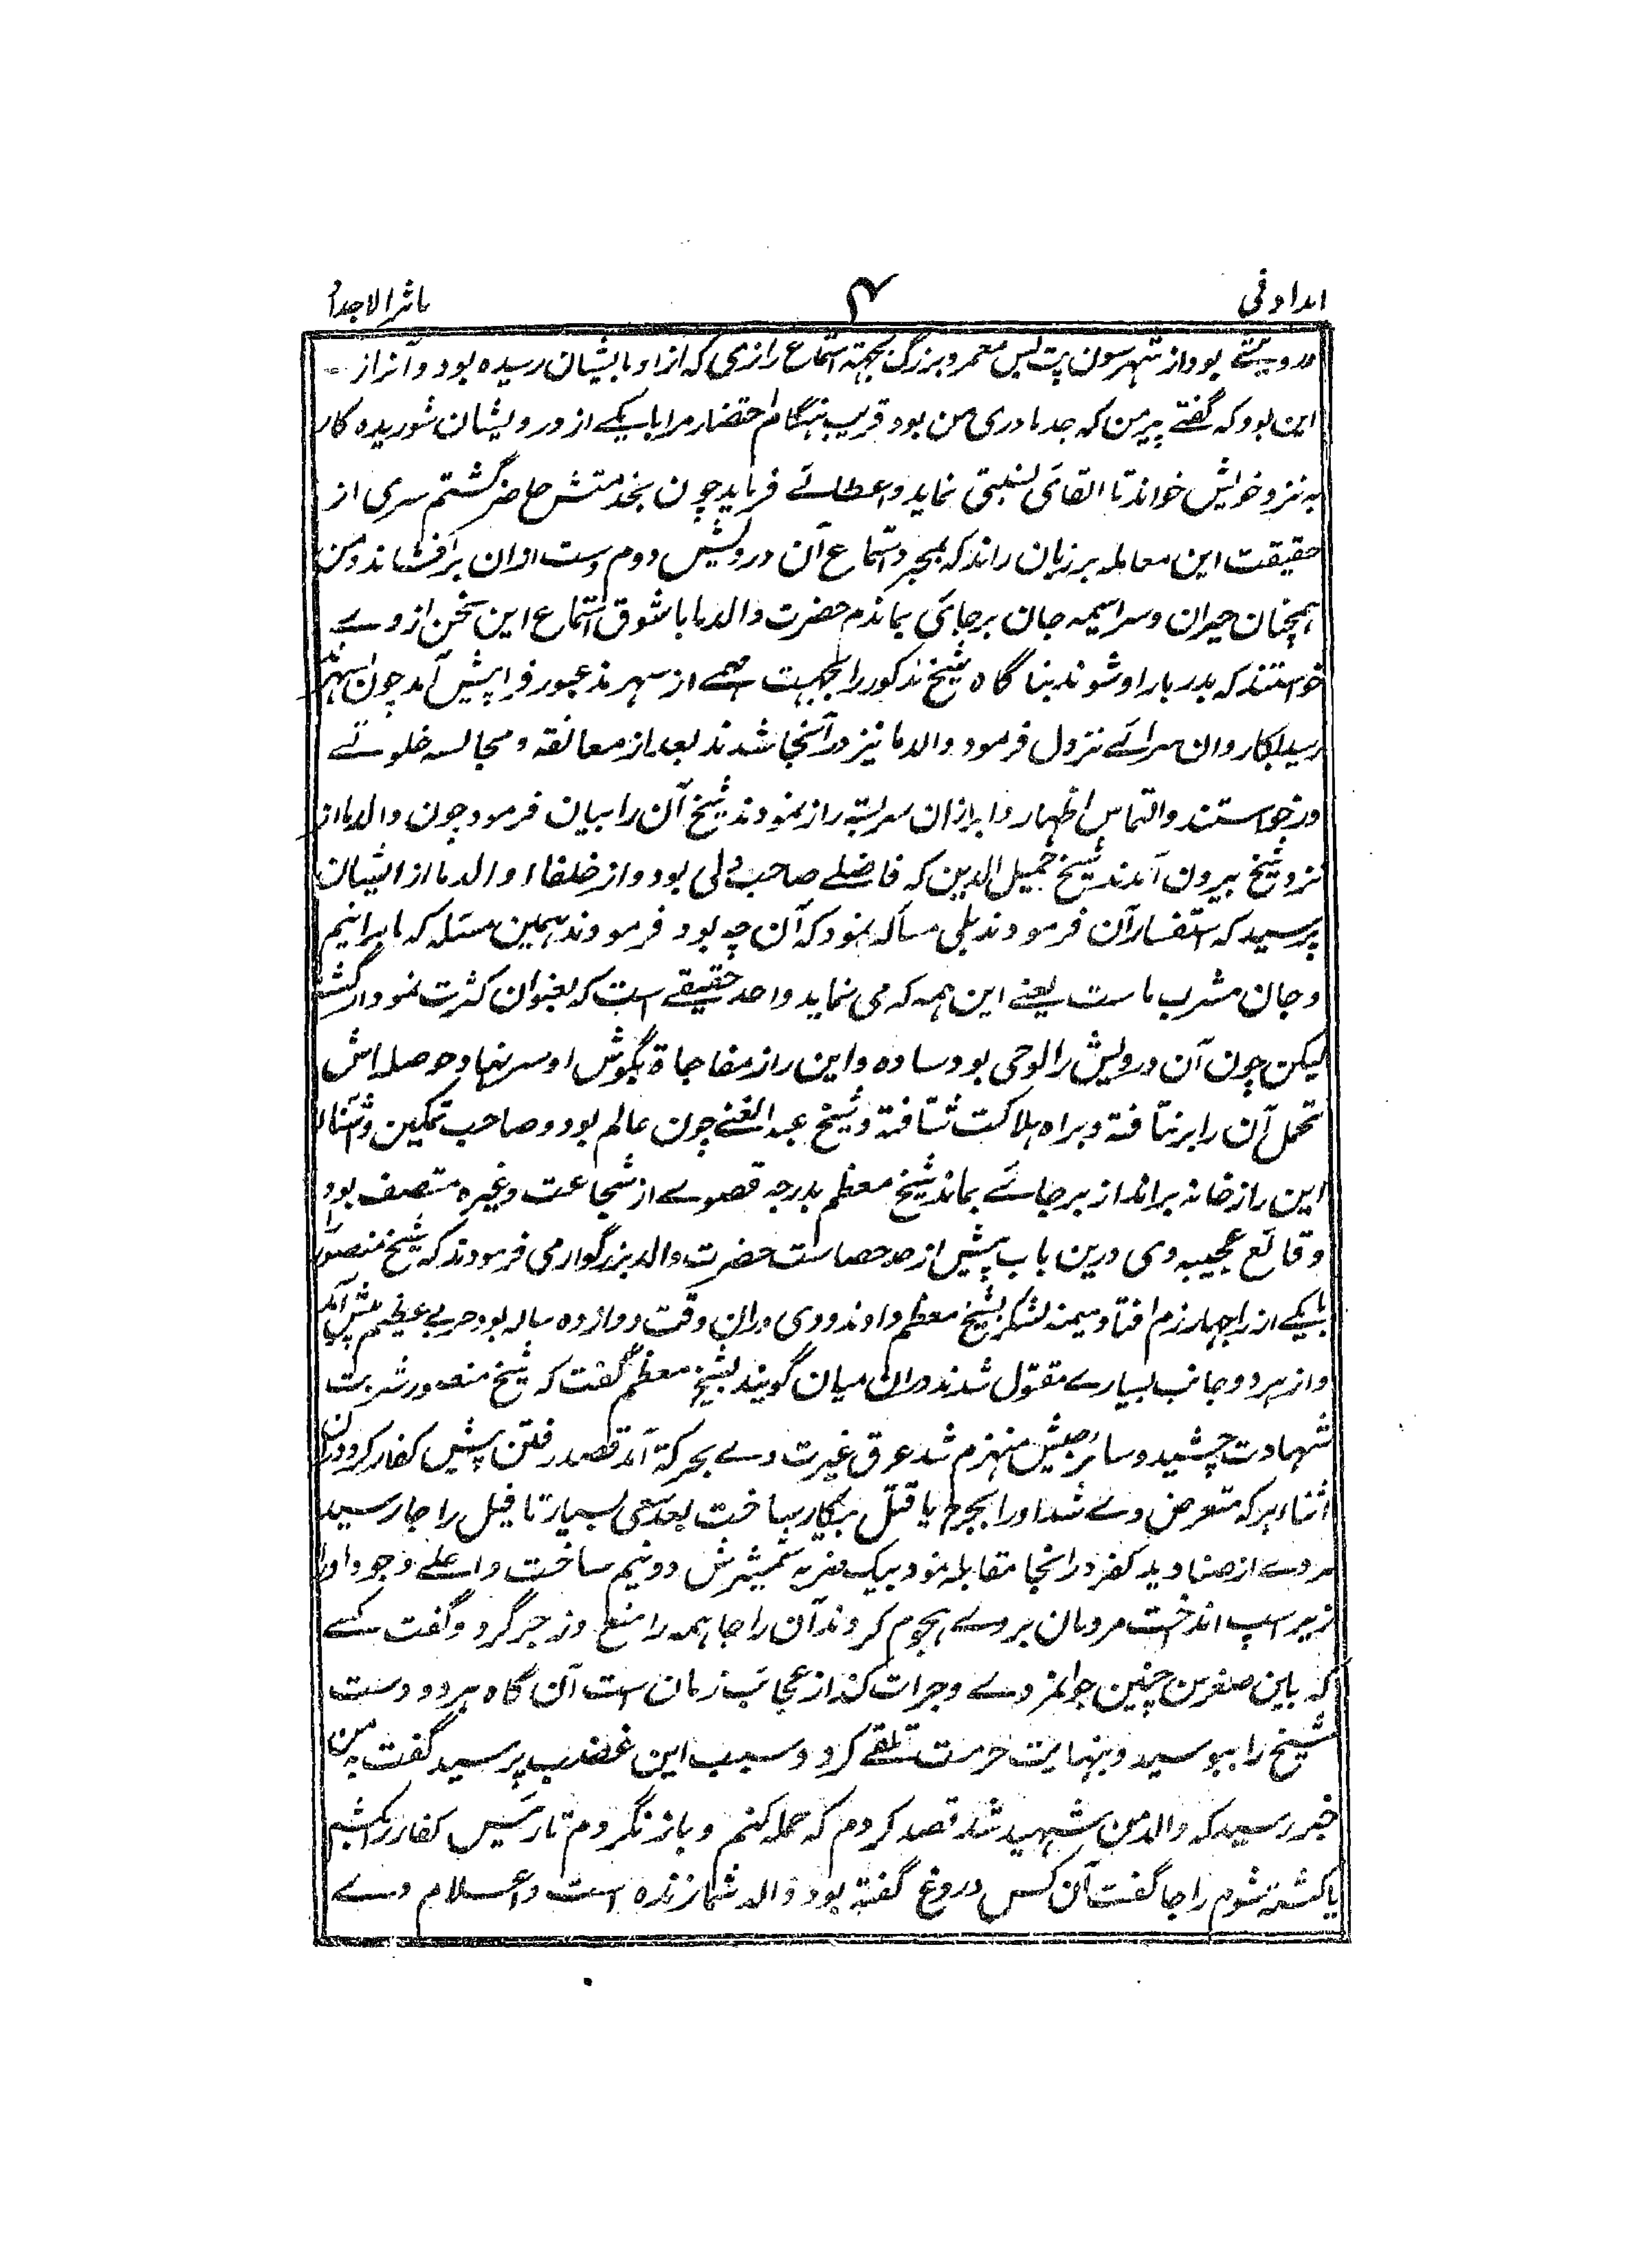 امداد فی
۴
ماثر الاجداد
درویشے بود از شهر سون پت بس معمر و بزرگ بجهة استماع رازی که ازاو بایشان رسیده بود و آنراز
این بود که گفتے پیر من که جد مادری من بود قریب هنگام احتضار مرا با یکے از درویشان شوریده کار
به نزد خویش خواند تا القای نسبتی نماید و اعطائے فرماید چون بخدمتش حاضر گشتم سری از
حقیقت این معامله بر زبان راند که بمجرد استماع آن درویش دوم دست ازان برافشاند و من
همچنان حیران و سراسیمه جان برجای بماندم حضرت والد ما با شوق استماع این سخن از وے
خواستند که بدربار او شوند بناگاه شیخ مذکور را بجهت مهمے از سهرند عبور فرا پیش آمد چون بسهرند
رسید بکاروان سرائے نزول فرمود والد ما نیز در آنجا شدند بعد از معانقه و مجالسه خلوتے
درخواستند و التماس اظهار و ابراز ان سربسته راز نمودند شیخ آن را بیان فرمود چون والد ما از
نزد شیخ بیرون آمدند شیخ جمیل الدین که فاضلے صاحب دلی بود و از خلفاء والد ما از ایشان
پرسید که استفسار آن فرمودند بلی مسأله نمود که آن چه بود فرمودند همین مسئله که ما برانیم
و جان مشرب ماست یعنے این همه که می نماید واحد حقیقے است که بعنوان کثرت نمودار گشته
لیکن چون آن درویش را لوحی بود ساده و این راز مفاجاة بگوش او سر نهاد حوصله اش
تحمل آن را برنتافته و براه هلاکت شتافته و شیخ عبد الغنے چون عالم بود و صاحب تمکین و آشنا
این راز خانه برانداز برجائے بماند شیخ معظم بدرجه قصوے از شجاعت و غیره متصف بود
وقائع عجیبه وی درین باب بیش از حد حصاست حضرت والد بزرگوار می فرمودند که شیخ منصور را
با یکے از راجها رزم افتاد میمنه لشکر بشیخ معظم دادند و وی دران وقت دوازده ساله بود حربے عظیم پیش آمد
و از هر دو جانب بسیارے مقتول شدند دران میان گویند بشیخ معظم گفت که شیخ منصور شربت
شهادت چشید و سائر جیش منهزم شد عرق غیرت وے بحرکة آمد قصد رفتن پیش کفار کرد و دران
اثناء هر که متعرض وے شد او را بجرح یا قتل بیکار ساخت بعد سعی بسیار تا فیل راجا رسید
مردے از صنادید کفره در انجا مقابله نمود بیک ضربه شمشیرش دو نیم ساخت و اعلے وجود او را
زیر اسپ انداخت مردمان بروے هجوم کردند آن راجا همه را منع و زجر کرد و گفت کسے
که باین صغر سن چنین جوانمردے و جرات کند از عجائب زمان است آن گاه هر دو دست
شیخ را ببوسید و بنهایت حرمت تلقے کرد و سبب این غضب پرسید گفت به من
خبر رسید که والد من شهید شد قصد کردم که حمله کنم و باز نگردم تا رئیس کفار را بکشم
یا کشته شوم راجا گفت آن کس دروغ گفته بود والد شما زنده است و اعلام وے